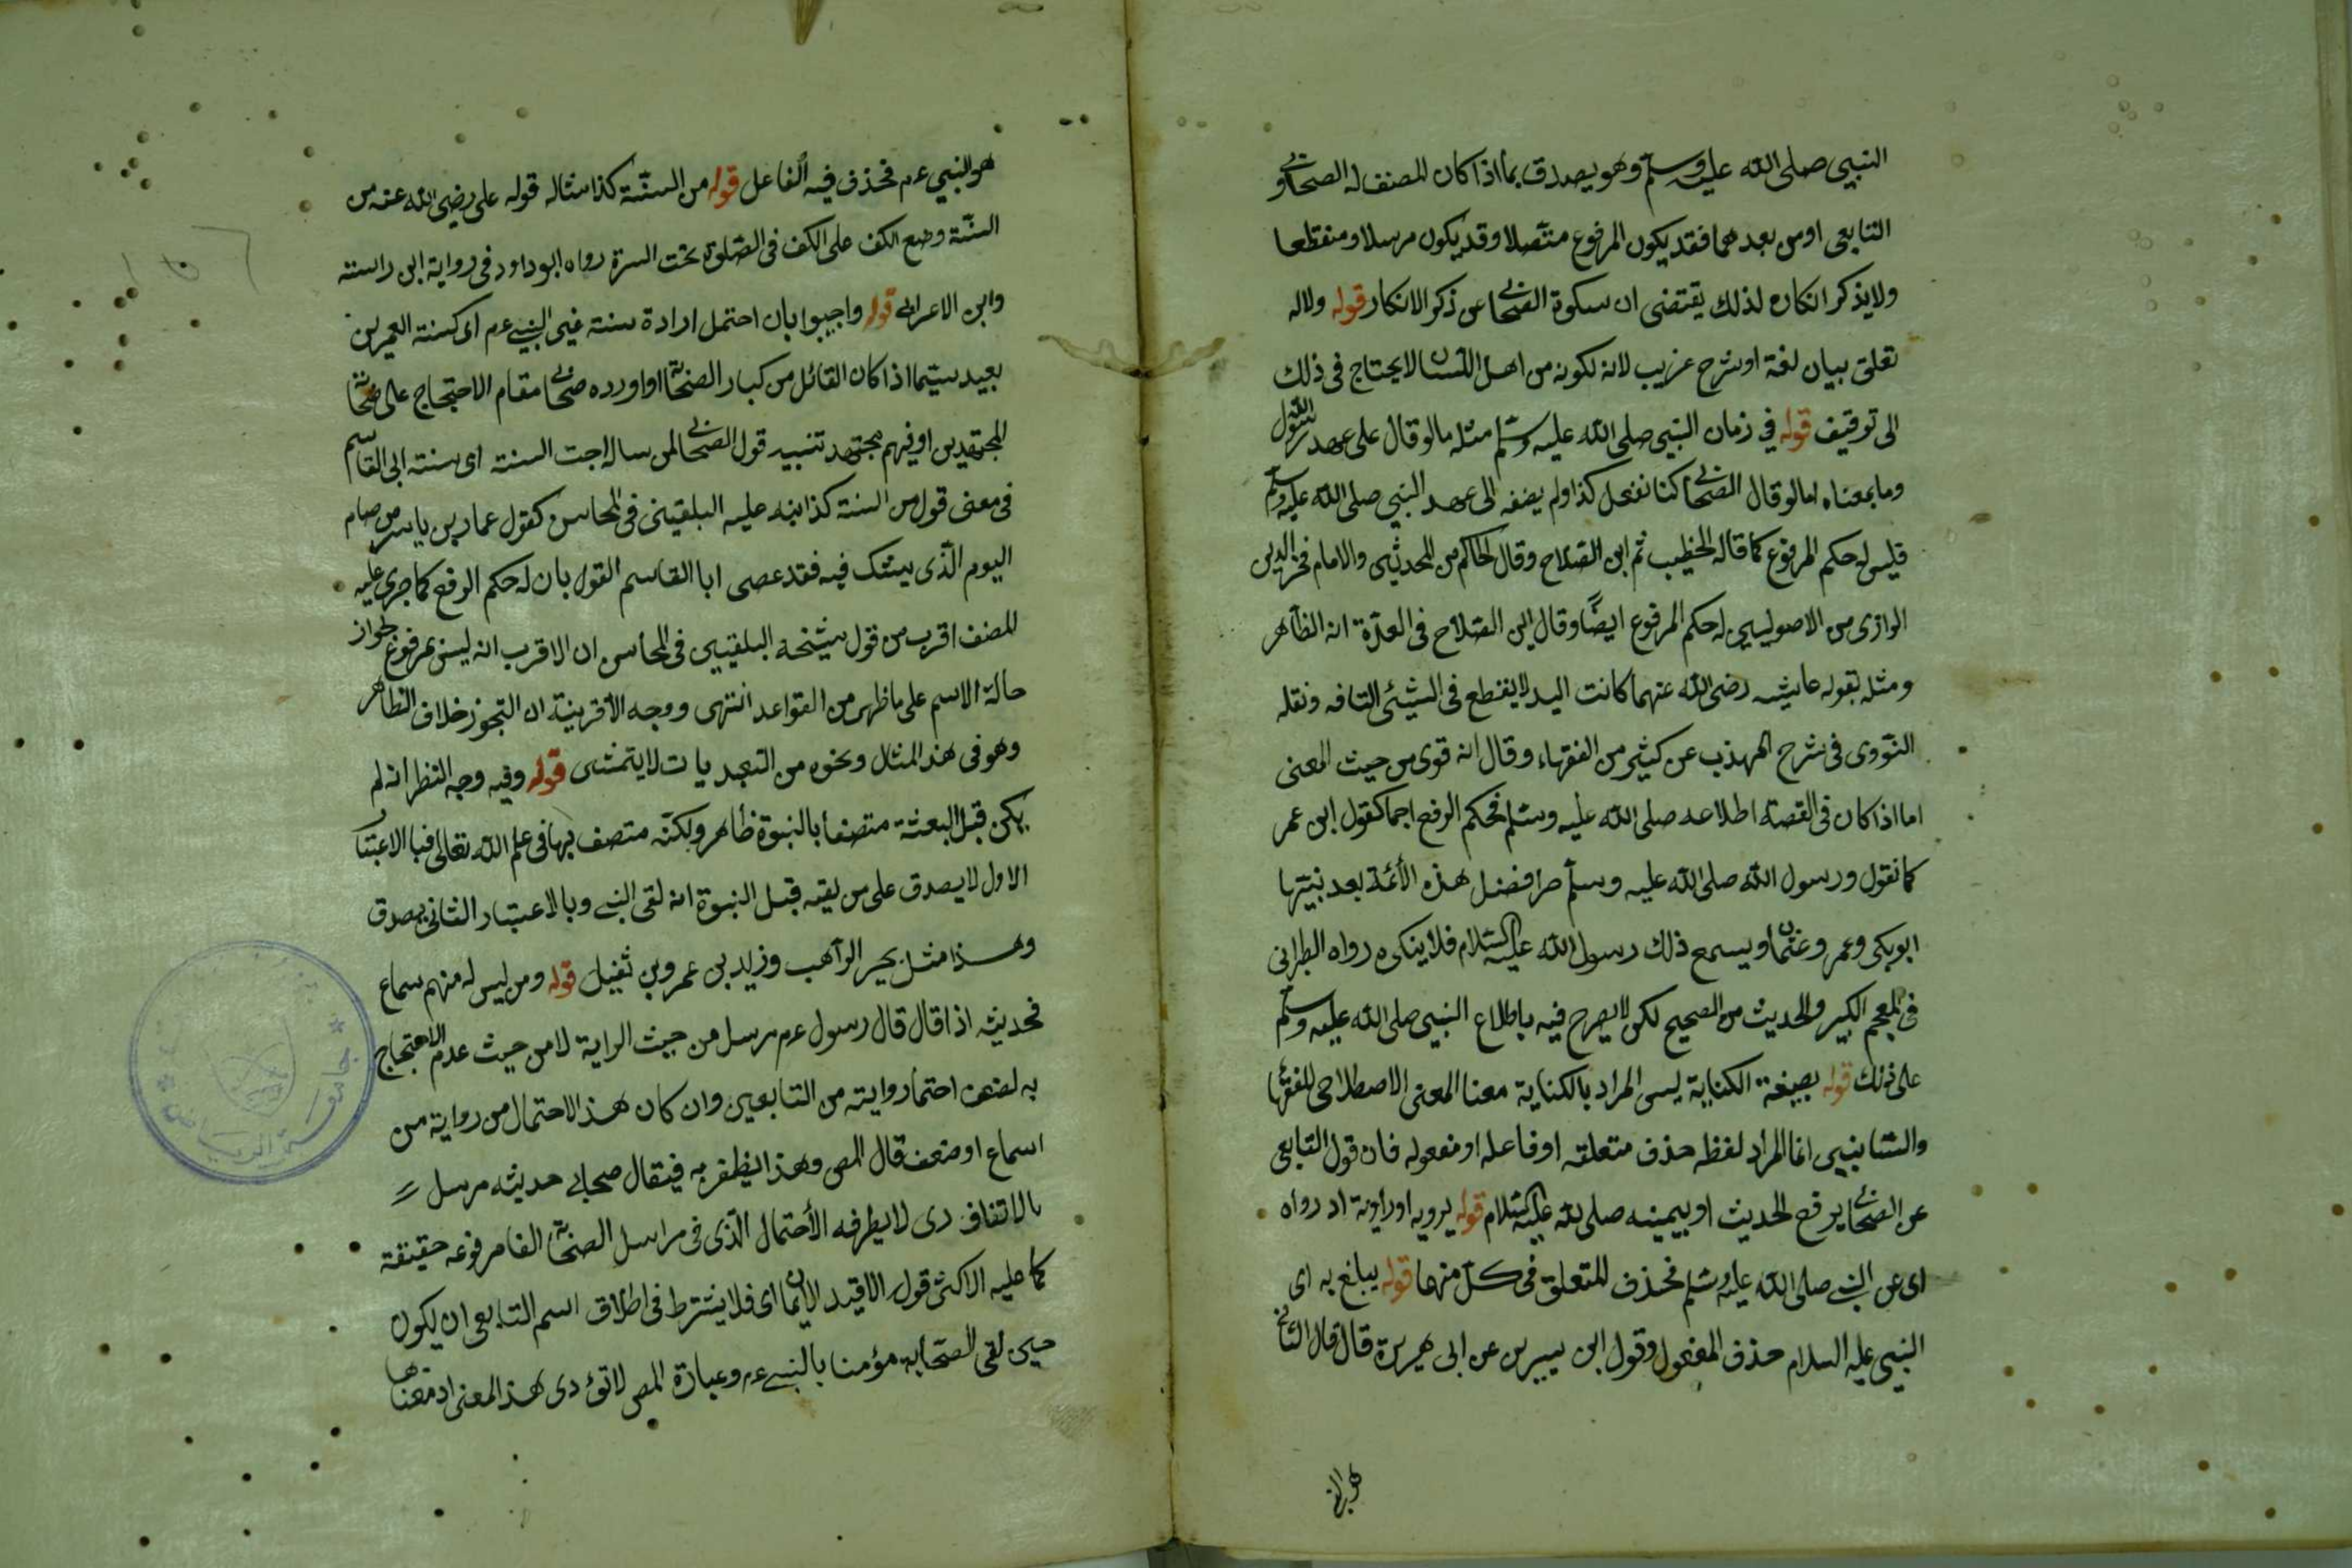 النبي صلى الله عليه وسلم وهو يصدق بما اذا كان المصنف له الصحابي و
التابعي او من بعدهما فقد يكون المرفوع متصلا وقد يكون مرسلا ومنقطعا
ولا يذكر انكاره لذلك يقتضى ان سكوة الصحابي عن ذكر الانكار قوله ولا له
تعلق ببيان لغة او شرح غريب لانه لكونه من اهل اللسان لا يحتاج فى ذلك
الى توقيف قوله في زمان النبي صلى الله عليه وسلم مثله ما لو قال على عهد رسول الله
وما بمعناه اما لو قال الصحابي كنا نفعل كذا ولم يضفه الى عهد النبي صلى الله عليه وسلم
فليس له حكم المرفوع كما قاله الخطيب ثم ابن الصلاح وقال الحاكم من المحدثين والامام فخر الدين
الرازى من الاصوليين له حكم المرفوع ايضًا وقال ابن الصلاح فى العدّة انه الظاهر
ومثله بقوله عايشه رضى الله عنهما كانت اليد لا يقطع فى الشيئ التافه ونقله
النووى فى شرح المهذب عن كثير من الفقهاء وقال انه قوى من حيث المعنى
اما اذا كان فى القصة اطلاعه صلى الله عليه وسلم فحكم الرفع اجما كقول ابن عمر
كما نقول ورسول الله صلى الله عليه وسلم افضل هذه الأئمة بعد نبيّها
ابوبكر وعمر وعثمان ويسمع ذلك رسول الله عليه السلام فلا ينكره رواه الطبرانى
فى المعجم الكبير والحديث من الصحيح لكن لا يصرح فيه باطلاع النبي صلى الله عليه وسلم
على ذلك قوله بصيغة الكناية ليس المراد بالكناية معنا المعنى الاصطلاحى للفقها
والبيانيين انما المراد لفظه حذف متعلقه او فاعله او مفعوله فان قول التابعى
عن الصحابي يرفع الحديث او ينميه صلى الله عليه السلام قوله يرويه او رواية اد رواه
اى عن النبي صلى الله عليه وسلم فحذف المتعلق فى كل منها قوله يبلغ به اى
النبي عليه السلام حذف المفعول وقول ابن سيرين عن ابى هريرة قال قال الثانى
هو النبي
هو النبي عم فحذف فيه الفاعل قوله من السنّة كذا مثاله قوله على رضى الله عنه من
السنّة وضع الكف على الكف فى الصلوة تحت السرة رواه ابو داود فى رواية ابن راسته
وابن الاعرابي قوله واجيبوا بان احتمل ارادة سنة غير النبي عم اى كسنة العمرين
بعيد سيّما اذا كان القائل من كبار الصحابة او اورده صحابي مقام الاحتجاج على صحابة
المجتهدين او فيهم مجتهد تنبيه قول الصحابي لمن ساله اجت السنة اى سنة ابى القاسم
فى معنى قول من السنة كذا نبه عليه البلقينى فى المحاسن كقول عمار بن ياسر من صام
اليوم الّذى يشك فيه فقد عصى ابا القاسم القول بان له حكم الرفع كما جرى عليه
المصنف اقرب من قول شيخه البلقينى فى المحاسن ان الاقرب انه ليس بمرفوع لجواز
حالة الاسم على ما ظهر من القواعد انتهى ووجه الأقربية ان التجوز خلاف الظاهر
وهو فى هذ المثال ونحوه من التعبديات لا يتمشى قوله وفيه وجه النظر انه لم
يكن قبل البعثة متصفا بالنبوة ظاهر ولكنّه متصف بها فى علم الله تعالى فبا الاعتبار
الاول لا يصدق على من لقيه قبل النبوة انه لقى النبي وبالاعتبار الثانى يصدق
وهذا مثل بحير الرآهب وزيد بن عمرو بن ثفيل قوله ومن ليس له منهم سماع
فحديثه اذا قال قال رسول عم مرسل من حيث الراية لا من حيث عدم الاحتجاج
به لضعف احتمار روايته من التابعين وان كان هذ الاحتمال من رواية من
اسماع او ضعف قال المص وهذا يظفر به فيقال صحابي حديثه مرسل
بالاتفاق دى لا يطرفه الأحتمال الّذى فى مراسل الصحابة الفا مرفوعه حقيقة
كما عليه الاكثر قول الا قيد الايمان اى فلا يشترط فى اطلاق اسم التابعى ان يكون
حين لقى الصحابه مؤمنا بالنبي عم وعبارة المص لا تؤدى هذ المعنى اد معنا ها